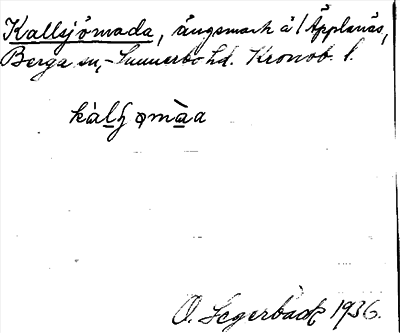 Kallsjömada, ängsmark å /Äpplanäs,
Berga sn, Sunnerbo hd. Kronob. l.
kàlɧømàa
O. Segerbäck 1936.